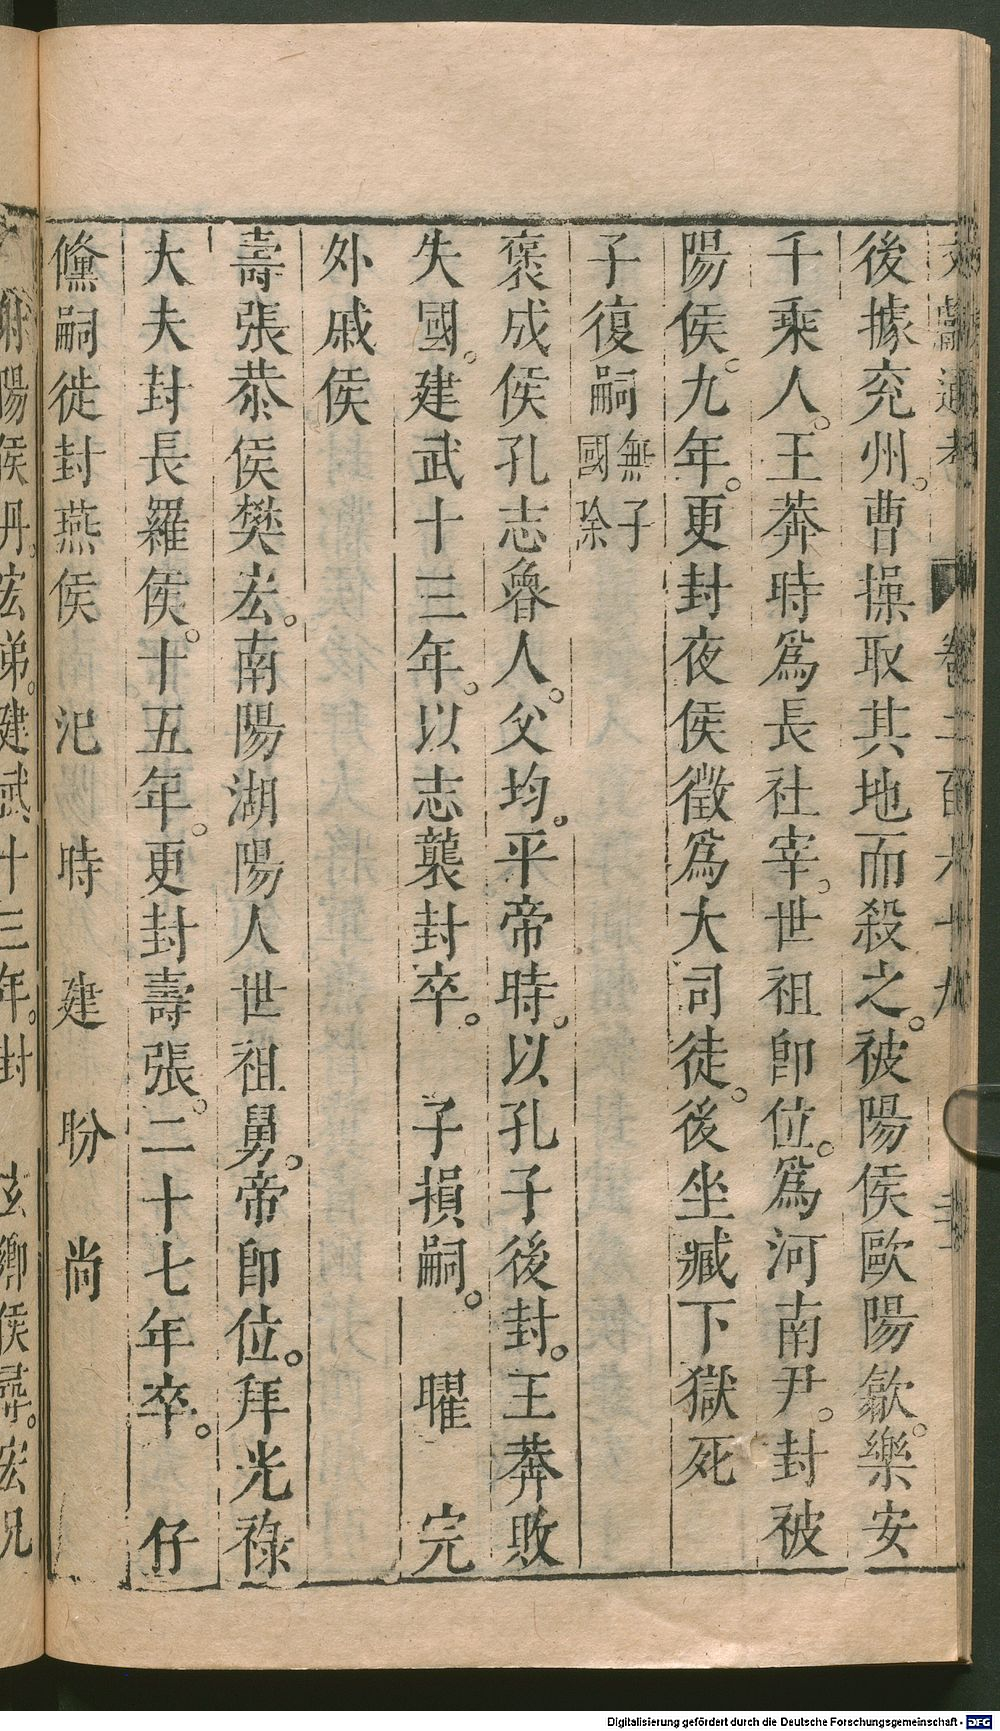 文獻通考 卷二百六十九
後據兖州。曹操取其地而殺之。被陽侯歐陽歙。樂安
千乘人。王莽時爲長社宰。世祖卽位。爲河南尹。封被
陽侯。九年。更封夜侯徵爲大司徒。後坐臧下獄死
子復嗣無子國除
褒成侯孔志魯人。父均。平帝時。以孔子後封。王莽敗
失國。建武十三年。以志襲封卒。 子損嗣。 曜 完
外戚侯
壽張恭侯樊宏。南陽湖陽人世祖舅。帝卽位。拜光祿
大夫封長羅侯。十五年。更封壽張。二十七年卒。 仔
儵嗣徙封燕侯 汜 時 建 盼 尚
射陽侯丹。宏弟。建武十三年。封 玄鄉侯尋。宏兄
Digitalisierung gefördert durch die Deutsche Forschungsgemeinschaft - DFG